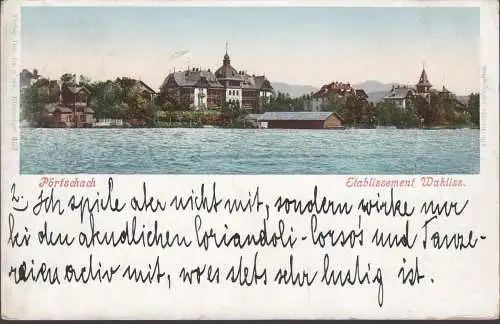 Pörtschach
Etablissement Wahliss.
2. Ich spiele aber nicht mit, sondern wirke nur
bei den abendlichen Coriandoli-Corsos und Tanze-
reien activ mit, wo es stets sehr lustig ist.